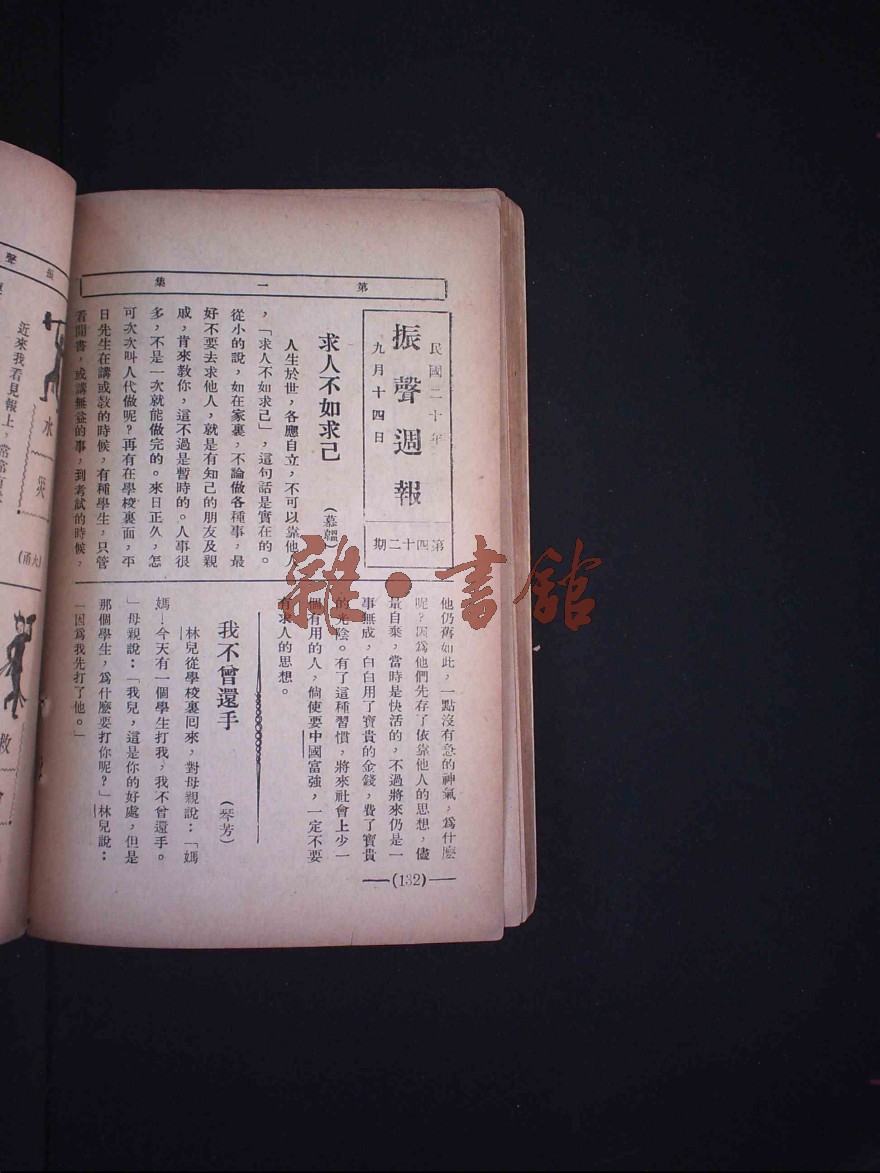 第一集
民國二十年
九月十四日
振聲週報
第四十二期
求人不如求己
(慕韞)
人生於世，各應自立，不可以靠他人
，「求人不如求己」，這句話是實在的。
從小的說，如在家裏，不論做各種事，最
好不要去求他人，就是有知己的朋友及親
戚，肯來教你，這不過是暫時的。人事很
多，不是一次就能做完的。來日正久，怎
可次次叫人代做呢？再有在學校裏面，平
日先生在講或教的時候，有種學生，只管
看閒書，或講無益的事，到考試的時候，
他仍舊如此，一點沒有急的神氣，爲什麼
呢？因爲他們先存了依靠他人的思想，儘
量自棄，當時是快活的，不過將來仍是一
事無成，白白用了寶貴的金錢，費了寶貴
的光陰。有了這種習慣，將來社會上少一
個有用的人，倘使要中國富強，一定不要
有求人的思想。
我不曾還手
(琴芳)
林兒從學校裏回來，對母親說：「媽
媽！今天有一個學生打我，我不曾還手。
」母親說：「我兒，這是你的好處，但是
那個學生，爲什麼要打你呢？」林兒說：
「因爲我先打了他。」
(132)
雜·書館
振聲
水災
(大甭)
近來我看見報上，常常有
救